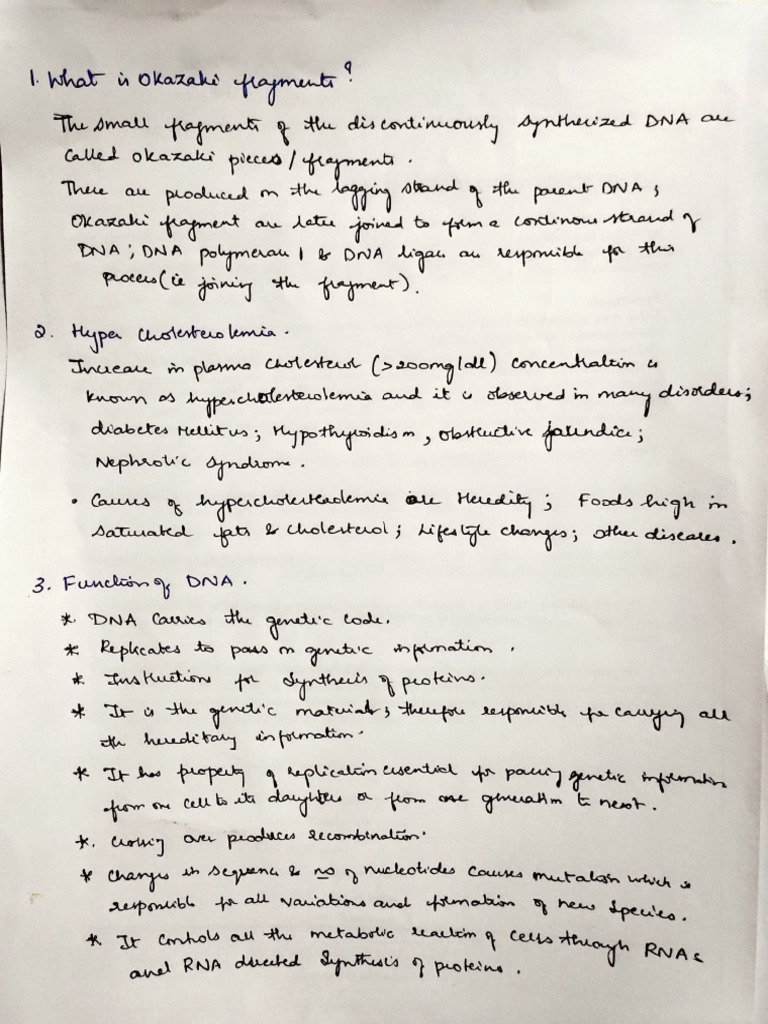 1. What is Okazaki fragments?
The small fragments of the discontinuously synthesized DNA are
called okazaki pieces/fragments.
There are produced on the lagging strand of the parent DNA;
Okazaki fragment are later joined to form a continous strand of
DNA; DNA polymerase 1 & DNA ligase are responsible for this
process (ie joining the fragment).
2. Hyper Cholesterolemia.
Increase in plasma cholesterol (>200mg/dl) concentration is
known as hypercholesterolemia and it is observed in many disorders;
diabetes Mellitus; Hypothyroidism, obstructive jaundice;
Nephrotic Syndrome.
• Causes of hypercholesterolemia are Heredity; Foods high in
saturated fats & cholesterol; Lifestyle changes; other diseases.
3. Function of DNA.
* DNA carries the genetic code.
* Replicates to pass on genetic information.
* Instructions for synthesis of proteins.
* It is the genetic material; therefore responsible for carrying all
the hereditary information.
* It has property of replication essential for passing genetic information
from one cell to its daughters or from one generation to next.
* Crossing over produces recombination.
* Changes in sequence & no of nucleotides causes mutation which is
responsible for all variations and formation of new species.
* It controls all the metabolic reaction of cells through RNAs
and RNA directed synthesis of proteins.